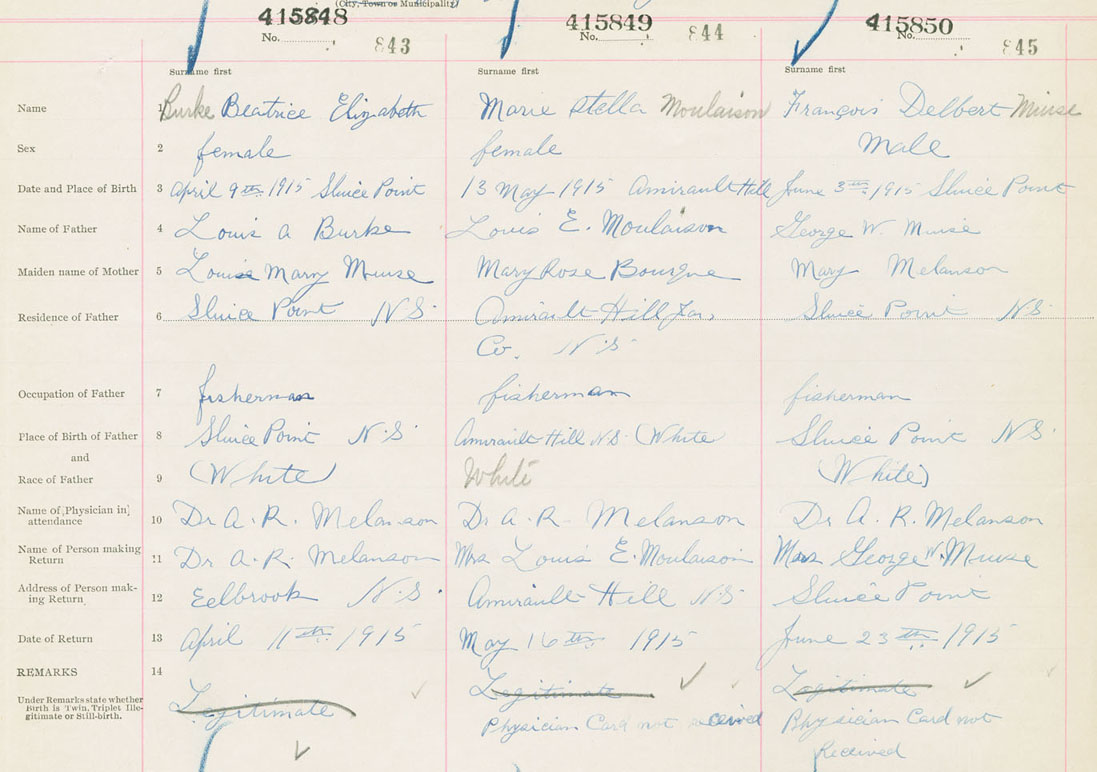 (City, Town or Municipality)
415848 415849 415850
No. 843 No. 844 No. 845
Surname first Surname first Surname first
Name 1 Burke Beatrice Elizabeth Marie Stella Moulaison François Delbert Muise
Sex 2 female female Male
Date and Place of Birth 3 April 9th 1915 Sluice Point 13 May 1915 Amirault Hill June 3rd 1915 Sluice Point
Name of Father 4 Louis A Burke Louis E. Moulaison George W. Muise
Maiden name of Mother 5 Louise Mary Muise Mary Rose Bourque Mary Melanson
Residence of Father 6 Sluice Point N S Amirault Hill Yar, Sluice Point N S
Co. N. S
Occupation of Father 7 fisherman fisherman fisherman
Place of Birth of Father 8 Sluice Point N. S. Amirault Hill N. S. (White Sluice Point N S.
and
Race of Father 9 (White) White (White)
Name of Physician in attendance 10 Dr A. R. Melanson Dr A. R. Melanson Dr A. R. Melanson
Name of Person making Return 11 Dr A. R. Melanson Mrs Louis E. Moulaison Mrs George W. Muise
Address of Person making Return 12 Eelbrook N. S. Amirault Hill N. S Sluice Point
Date of Return 13 April 11th 1915 May 16th 1915 June 23rd 1915
REMARKS 14
Under Remarks state whether Birth is Twin, Triplet Illegitimate or Still-birth. Legitimate Legitimate Legitimate
Physician Card not received Physician Card not
Received